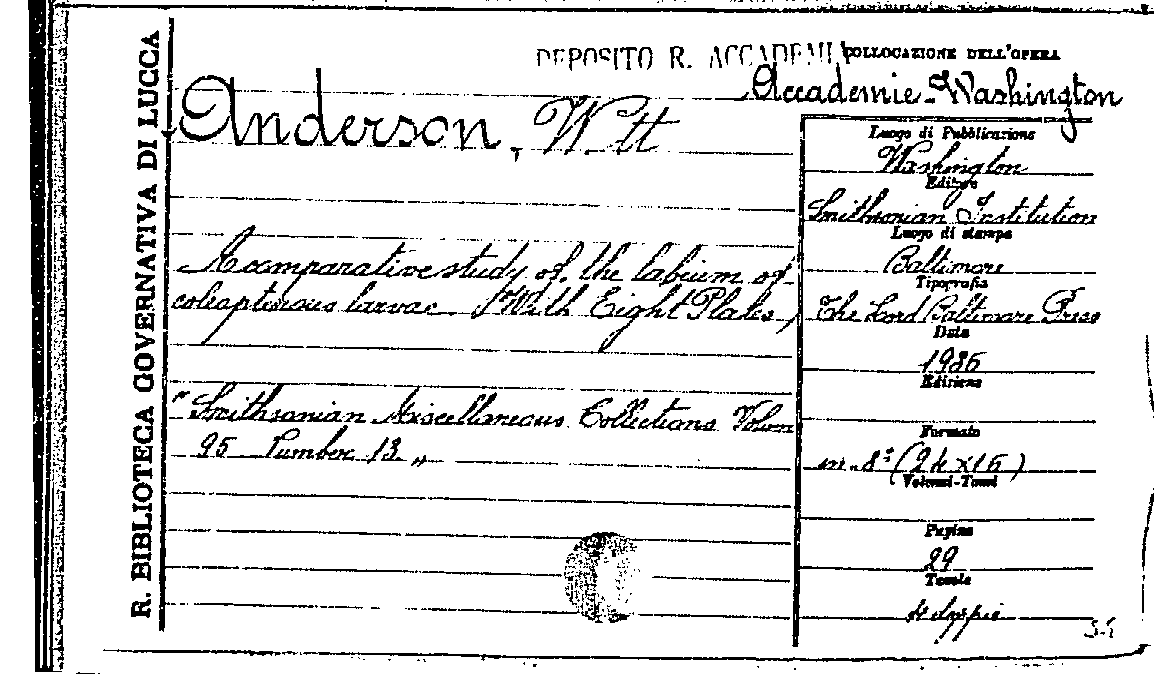 R. BIBLIOTECA GOVERNATIVA DI LUCCA
DEPOSITO R. ACCADEMI
COLLOCAZIONE DELL'OPERA
Accademie-Washington
Anderson, W tt
Luogo di Pubblicazione
Washington
Editore
Smithsonian Institution
Luogo di stampa
Baltimore
Tipografia
The Lord Baltimore Press
Data
1936
Edizione
Formato
in-8° (24x15)
Volumi-Tomi
Pagine
29
Tavole
A comparative study of the labium of
coleopterous larvae (With Eight Plates)
"Smithsonian Miscellaneous Collections Volum
95 Number 13"